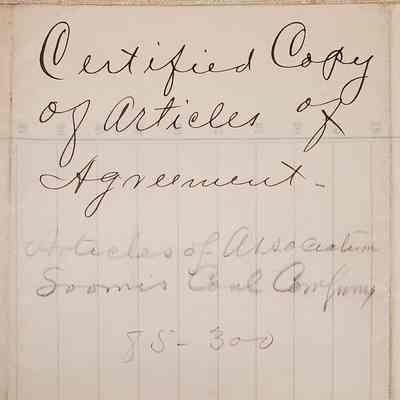 Certified Copy
of Articles of
Agreement.
Articles of Association
Soomis Coal Company
85-300